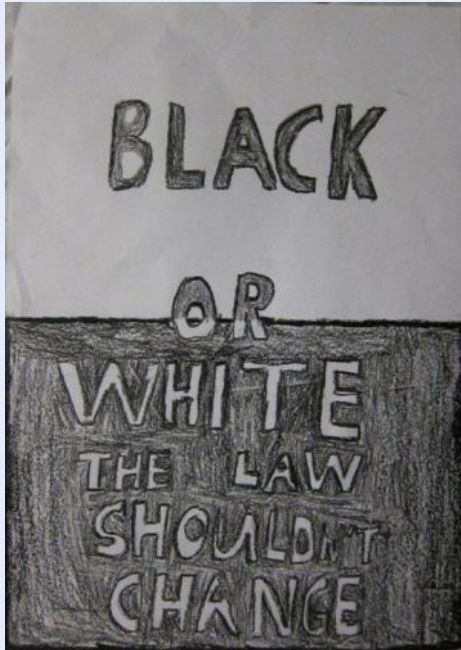 BLACK
OR
WHITE
THE LAW
SHOULDN'T
CHANGE